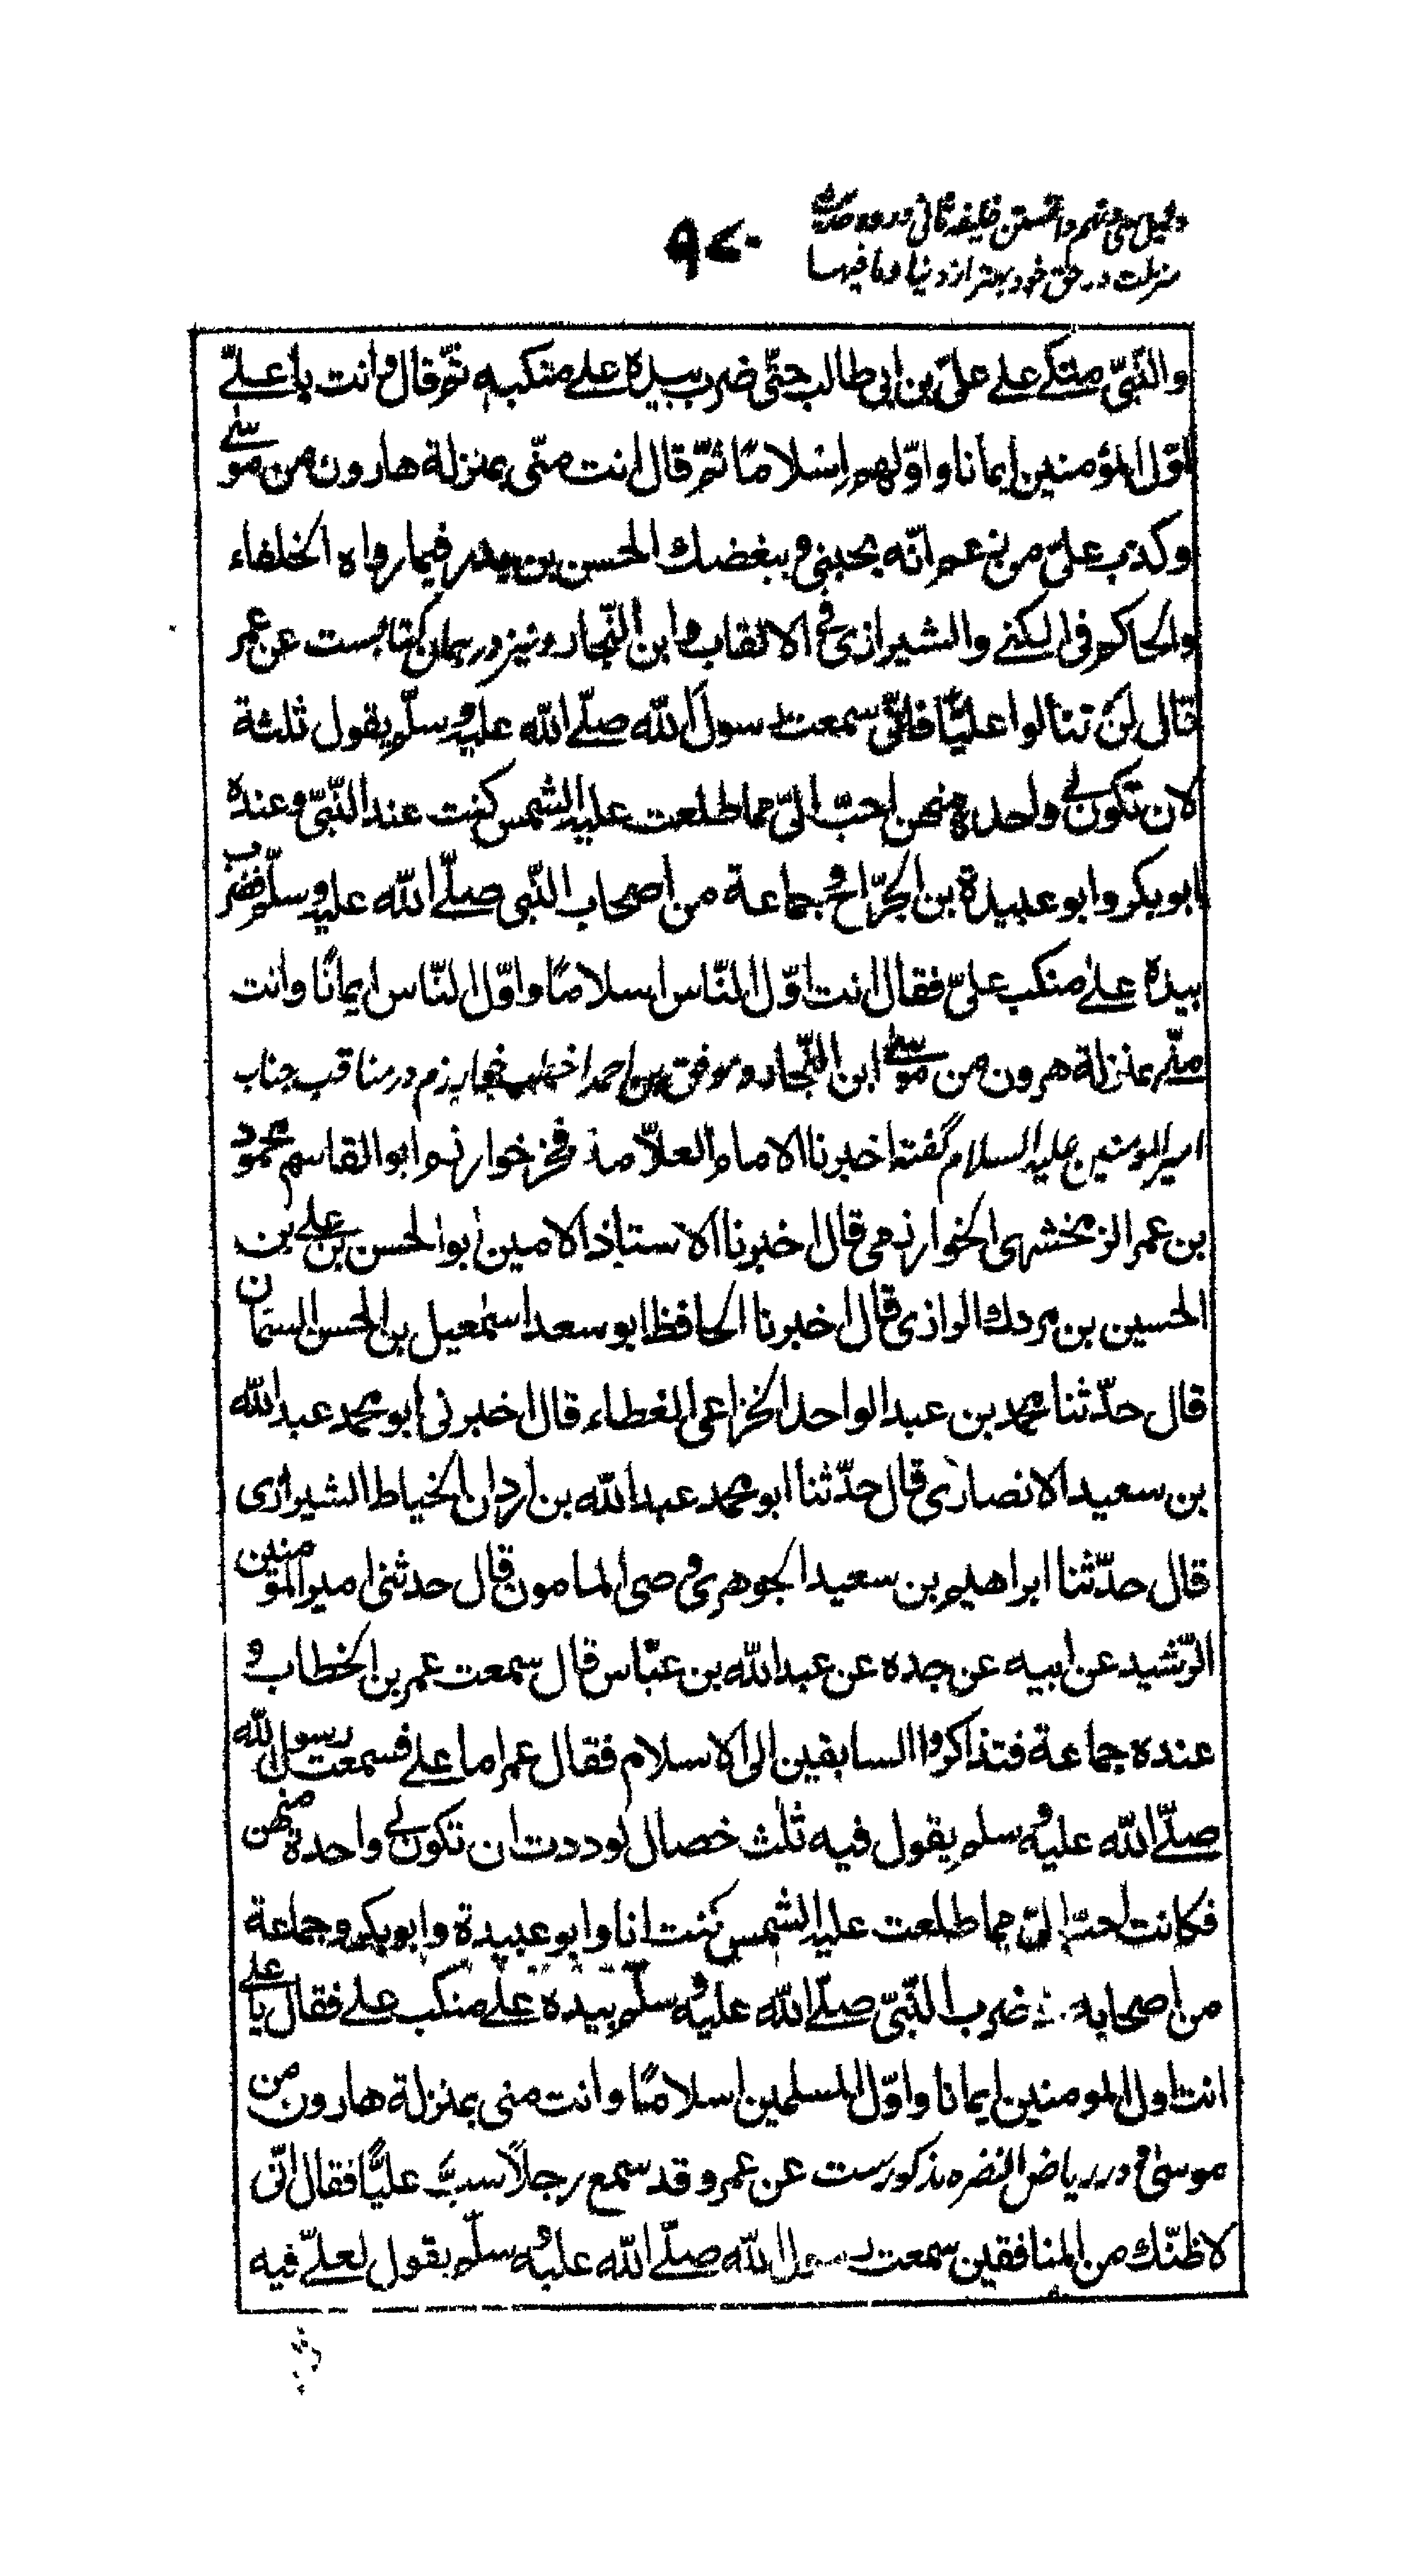 دليل سى وهفتم دانستن خليفه ثانى ورود حديث
منزلت در حق خود بهتر از دنيا وما فيها
۹۷۰
والنّبىّ متكى على علىّ بن ابى طالب حتّى ضرب بيده على منكبه ثمّ قال وانت يا علىّ
اوّل المؤمنين ايمانا واوّلهم اسلاما ثمّ قال انت منّى بمنزلة هارون من موسى
وكذب علىّ من زعم انّه يحبنى ويبغضك الحسن بن بدر فيما رواه الخلفاء
والحاكم فى الكنى والشيرازى فى الالقاب وابن النّجار ونيز در همان كتابست عن عمر
قال لن تنالوا عليّا فانّى سمعت رسول الله صلّى الله عليه وسلّم يقول ثلثة
لان تكون لى واحدة منهن احبّ الىّ مما طلعت عليه الشمس كنت عند النّبىّ وعنده
ابو بكر وابو عبيدة بن الجرّاح وجماعة من اصحاب النّبى صلّى الله عليه وسلّم فضرب
بيده على منكب علىّ فقال انت اوّل النّاس اسلامًا واوّل النّاس ايمانًا وانت
منّى بمنزلة هرون من موسى ابن النّجار وموفق بن احمد اخطب خوارزم در مناقب جناب
امير المومنين عليه السلام گفته اخبرنا الامام العلّامة فخر خوارزم ابو القاسم محمود
بن عمر الزمخشرى الخوارزمى قال اخبرنا الاستاذ الامين ابو الحسن على بن
الحسين بن مردك الرازى قال اخبرنا الحافظ ابو سعد اسمٰعيل بن الحسن السمّان
قال حدّثنا محمد بن عبد الواحد الخزاعى المغطاء قال اخبرنى ابو محمد عبد الله
بن سعيد الانصارى قال حدّثنا ابو محمد عبد الله بن اردان الخياط الشيرازى
قال حدّثنا ابراهيم بن سعيد الجوهرى وصى المامون قال حدثنى امير المومنين
الرّشيد عن ابيه عن جده عن عبد الله بن عبّاس قال سمعت عمر بن الخطاب و
عنده جماعة فتذاكروا السابقين الى الاسلام فقال عمر اما على فسمعت رسول الله
صلّى الله عليه وسلم يقول فيه ثلث خصال لوددت ان تكون لى واحدة منهن
فكانت احبّ الىّ مما طلعت عليه الشمس كنت انا وابو عبيدة وابو بكر وجماعة
من اصحابه اذ ضرب النّبىّ صلّى الله عليه وسلّم بيده على منكب على فقال يا على
انت اول المومنين ايمانا واوّل المسلمين اسلامًا وانت منى بمنزلة هارون من
موسى و در رياض النضره مذكورست عن عمر وقد سمع رجلًا سبّ عليًّا فقال انّى
لاظنّك من المنافقين سمعت رسول الله صلّى الله عليه وسلّم يقول لعلىّ فيه